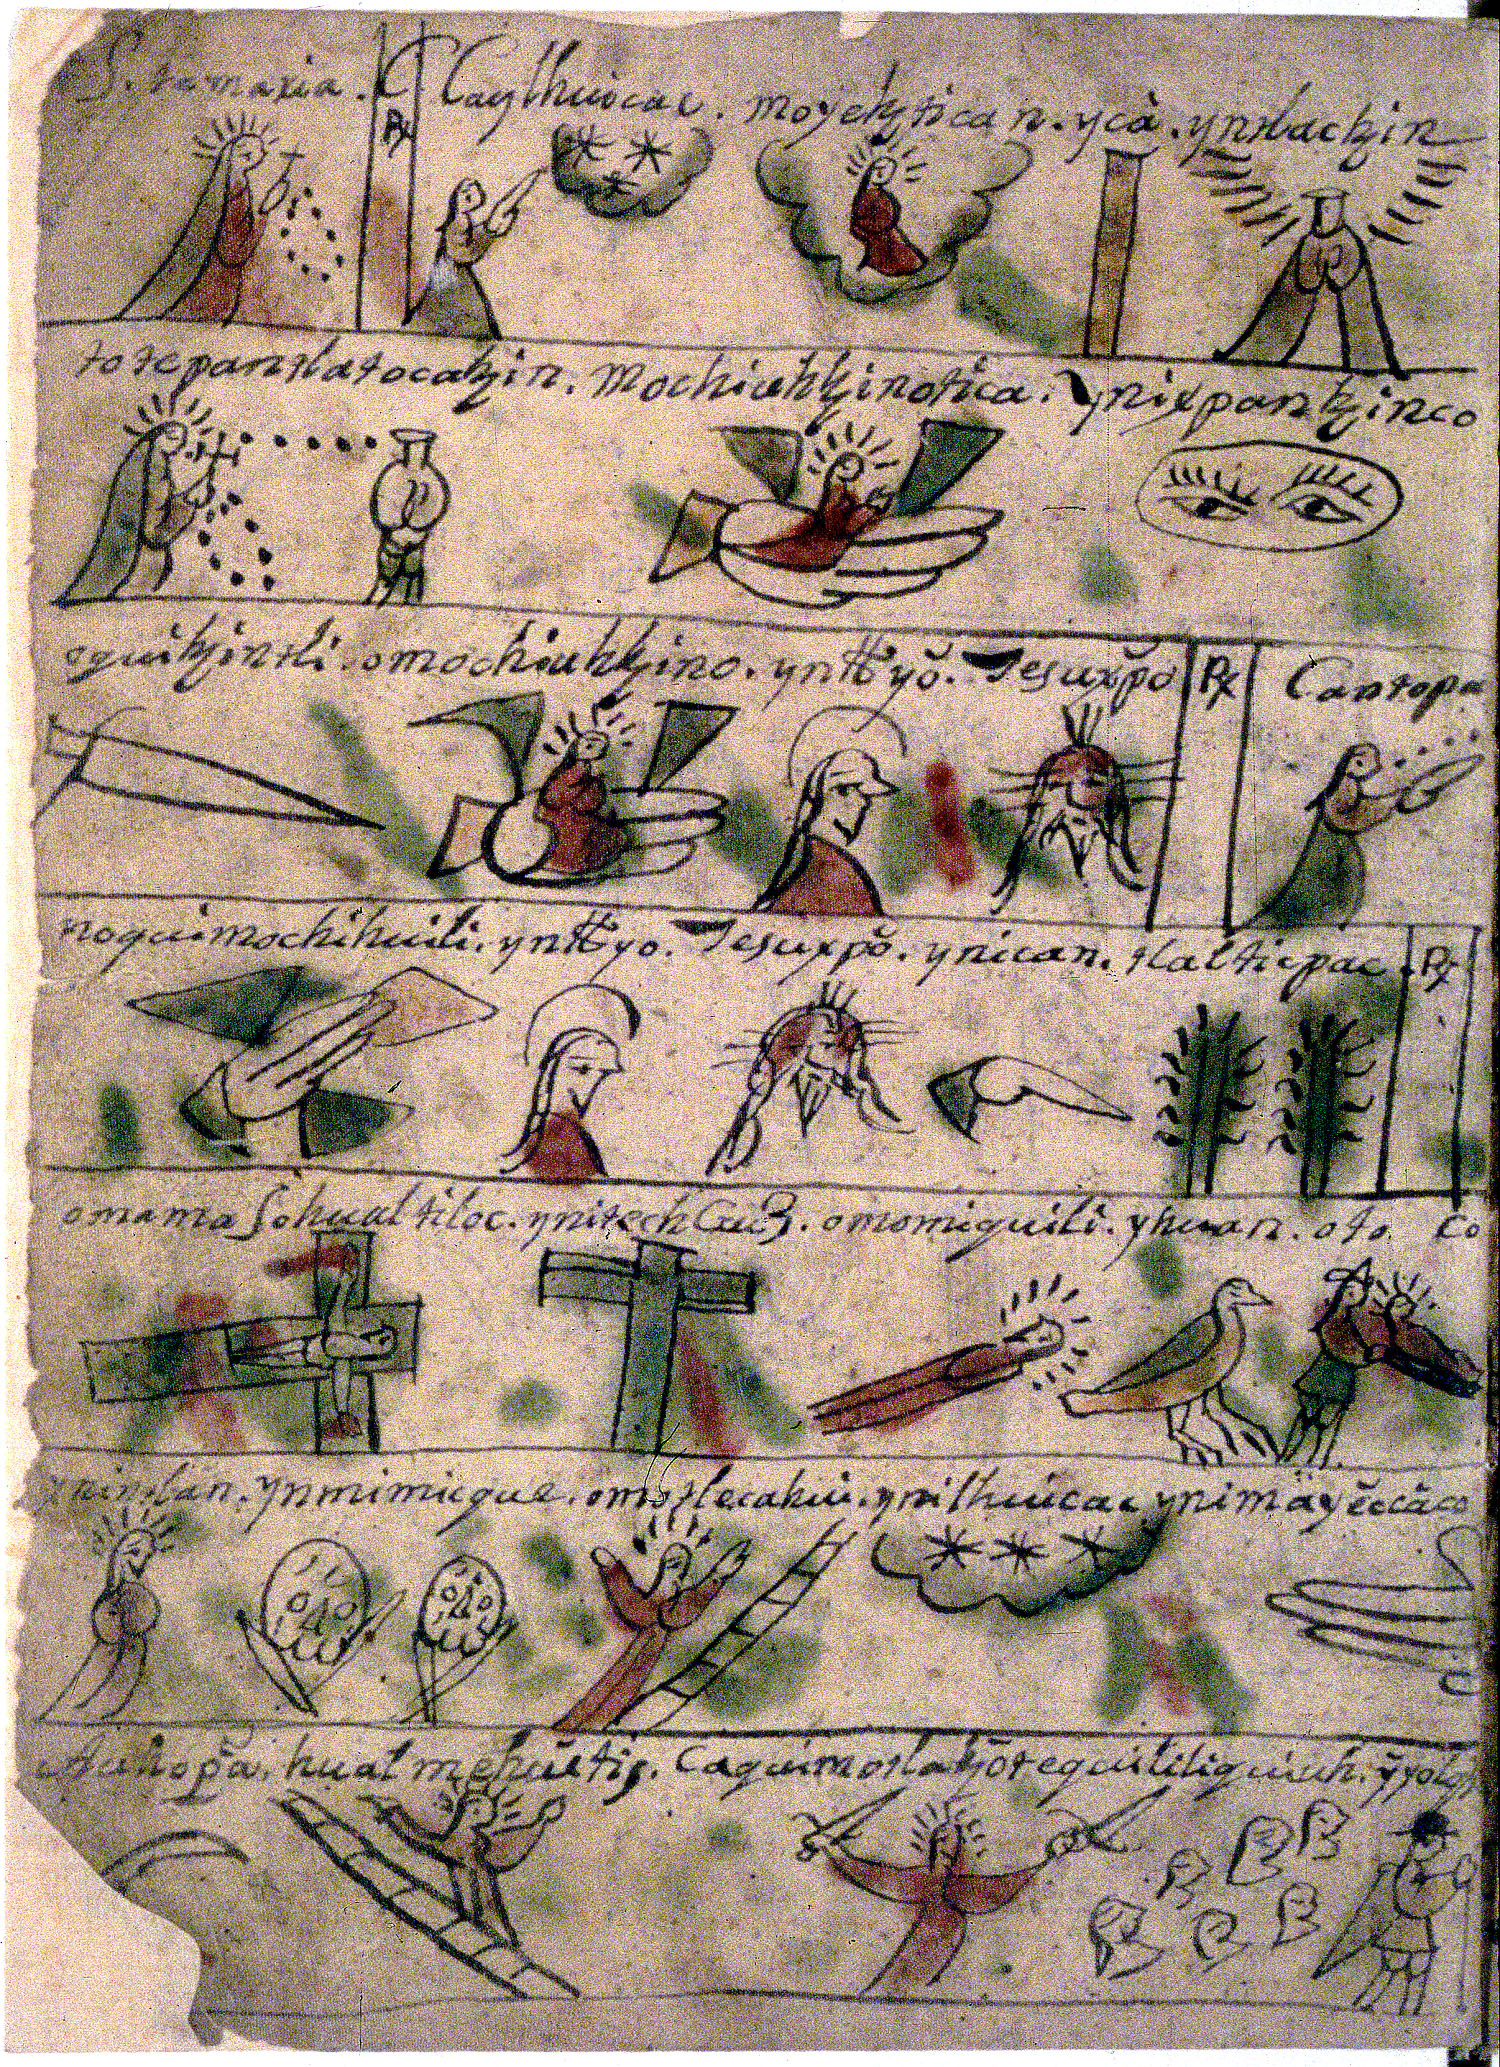 S. ta maria. C Caylhuicac. moyeltztican. ycà. yntlactzin
totepantlatocatzin. Mochiuhtzinotica. ynixpantzinco
oquitzintli. omochiuhtzino. yntt̃yõ. Jesuxp̃o Rx Cantopa
noquimochihuili. yntt̃yo. Jesuxp̃o. ynican. tlalticpac. Rx
omamaſohualtiloc. ynitech Cruz. omomiquili. yhuan. oto. co
yntlan. ynmimicque. omotlecahui. ynilhuicac ynimayeccãco
hualmehuitiz. Caquimotlatzõtequililiquiuh.